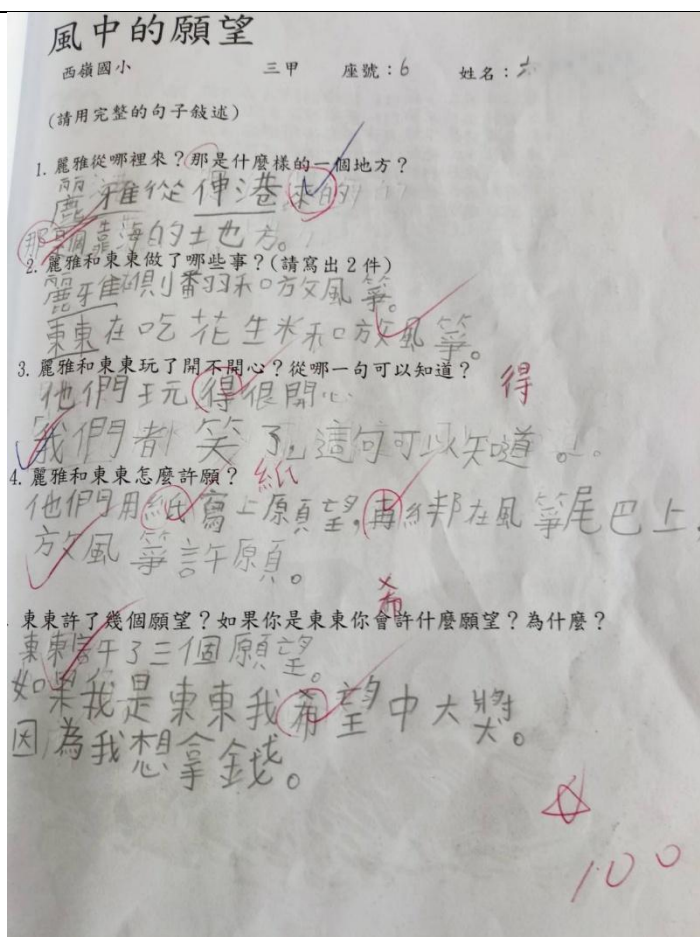 風中的願望
西嶺國小 三甲 座號：6 姓名：
(請用完整的句子敍述)
1. 麗雅從哪裡來？那是什麼樣的一個地方？
麗雅從伸港來的
那個靠海的地方。
2. 麗雅和東東做了哪些事？(請寫出2件)
麗雅和放風箏。
東東在吃花生米和放風箏。
3. 麗雅和東東玩了開不開心？從哪一句可以知道？
他們玩得很開心 得
我們都笑了，這句可以知道。
4. 麗雅和東東怎麼許願？ 紙
他們用紙寫上願望，再綁在風箏尾巴上，
放風箏許願。
希
東東許了幾個願望？如果你是東東你會許什麼願望？為什麼？
東東許了三個願望。
如果我是東東我希望中大獎。
因為我想拿錢。
100